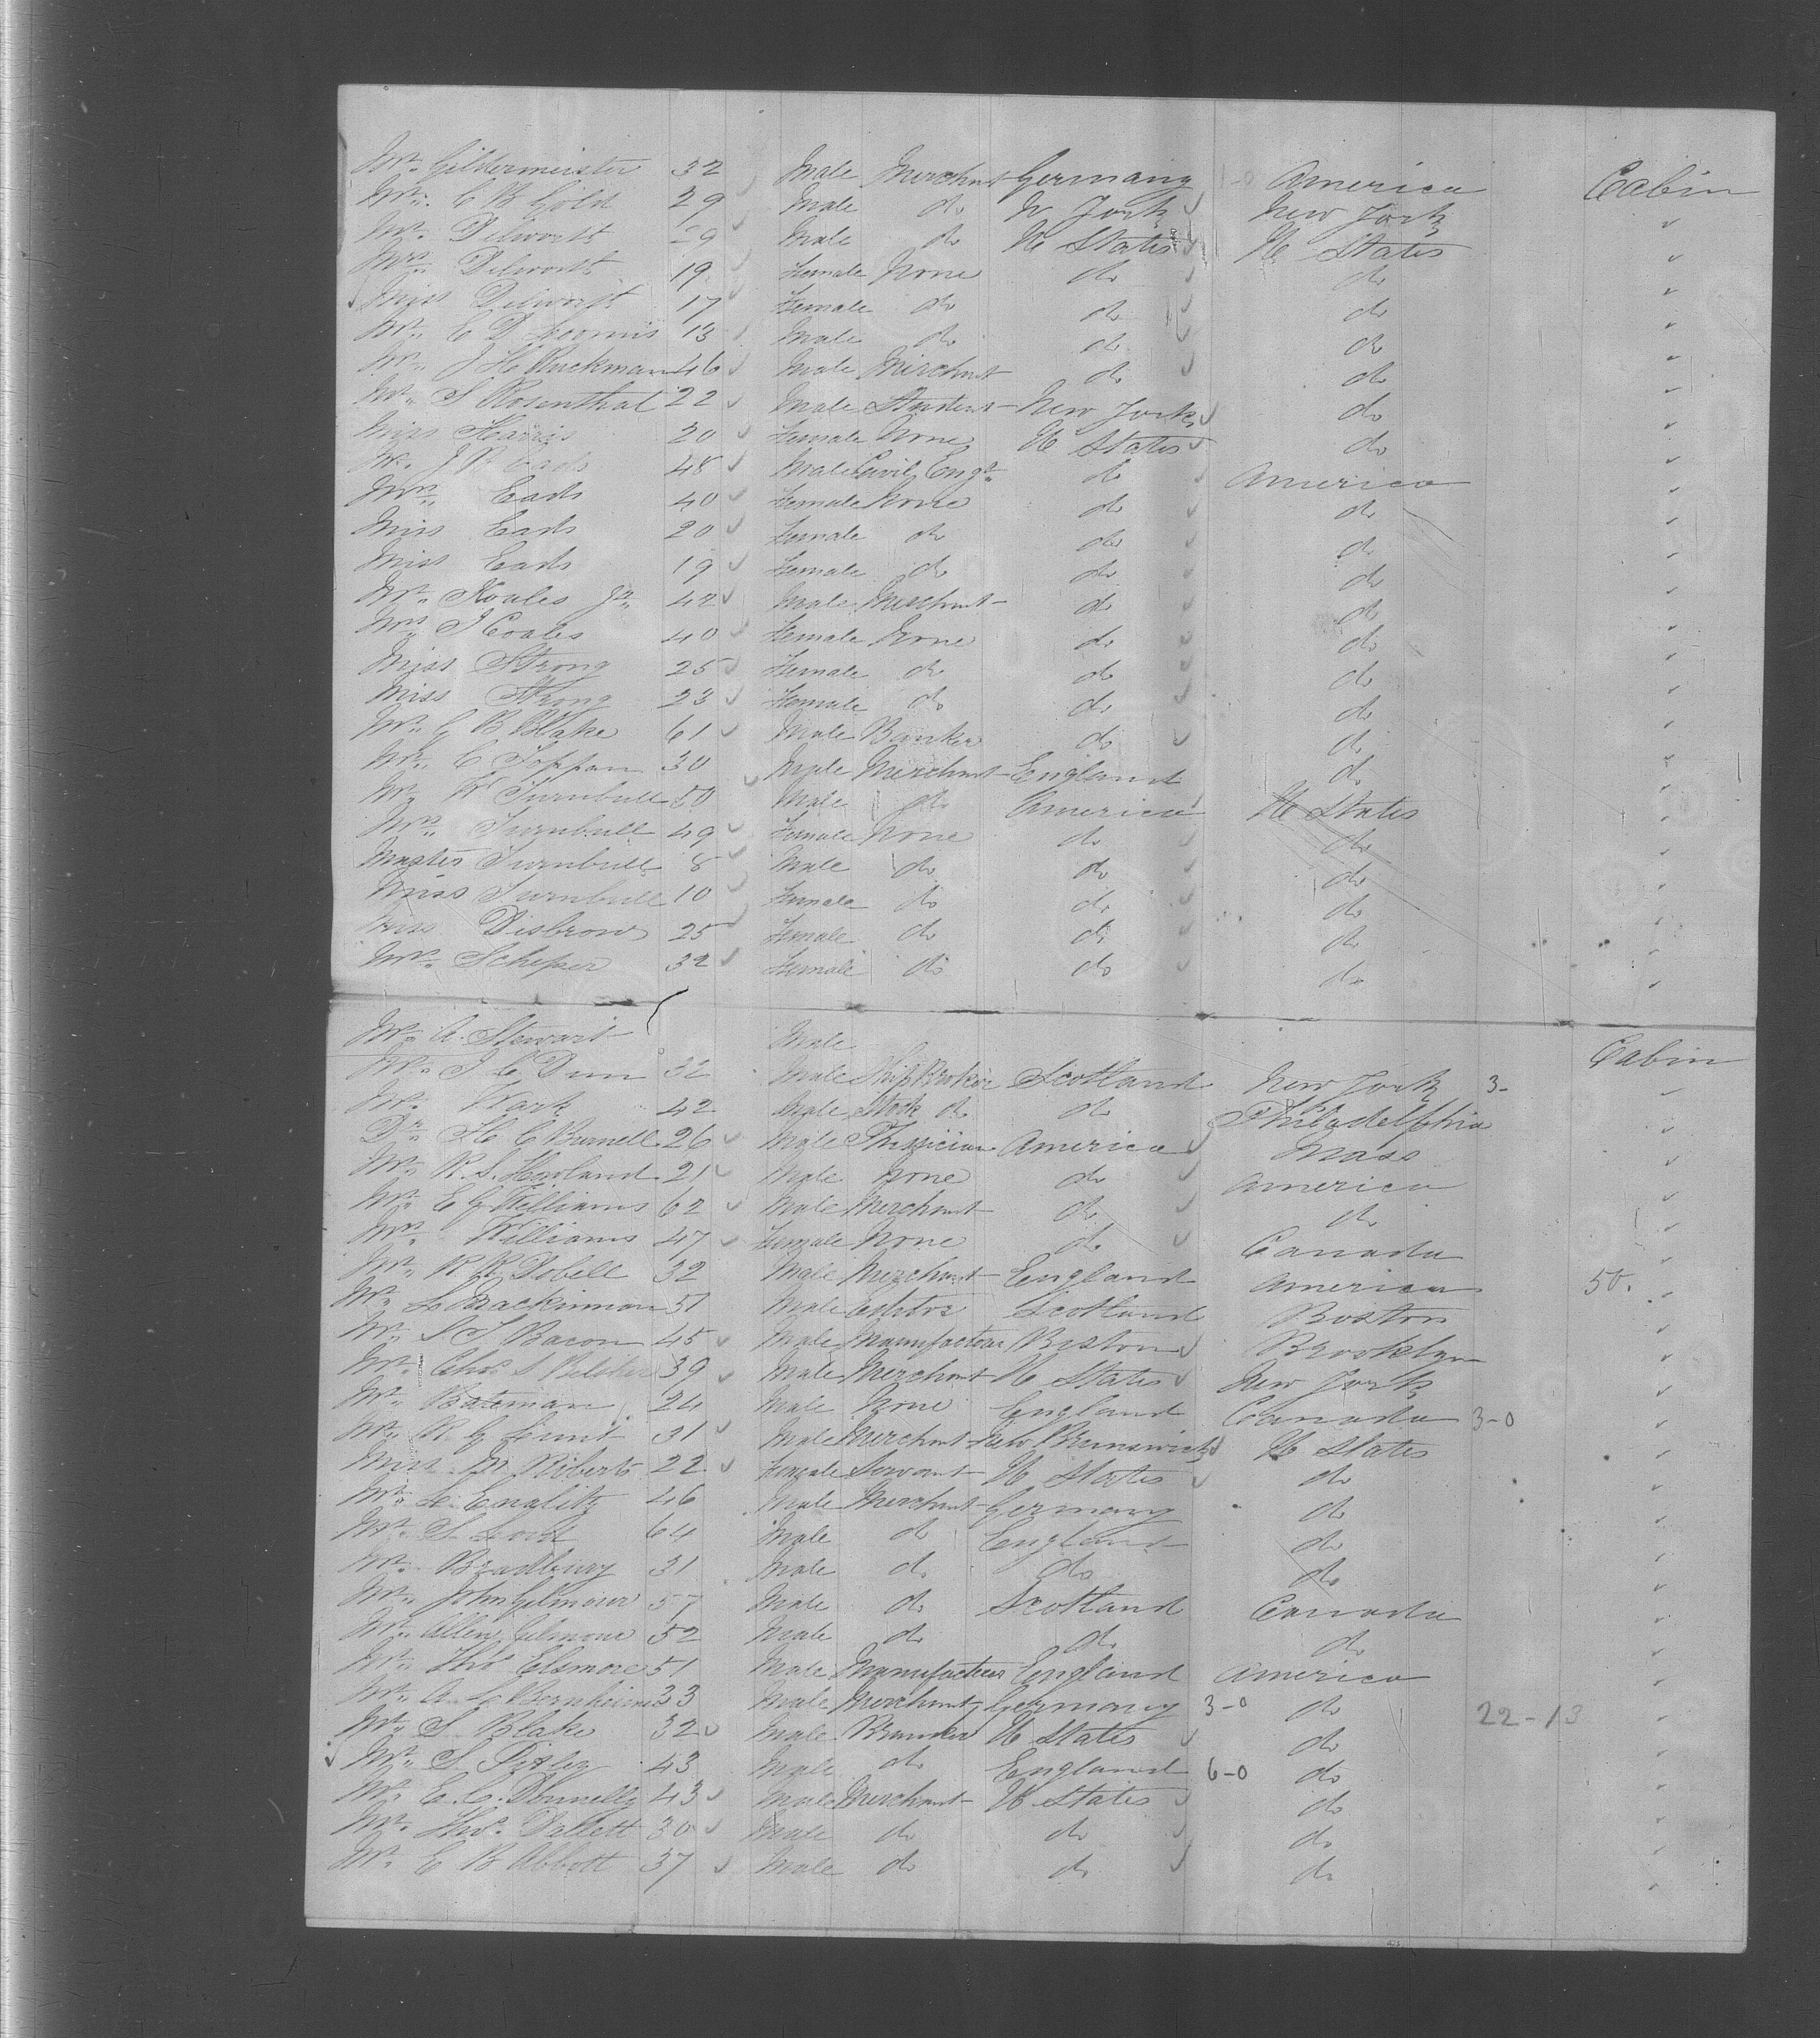 Mr. Gildermeister 32 Male Merchant Germany America Cabin
Mr. C B Gold 29 Male do N York New York "
Mr. Dilworth 29 Male do U States U States "
Mrs. Dilworth 19 Female None do do "
Miss Dilworth 17 Female do do do "
Mr. E D Loomis 13 Male do do do "
Mr. J H Ruckman 46 Male Merchant do do "
Mr. S Rosenthal 22 Male Student New York do "
Miss Harris 20 Female None U States do "
Mr. J B Eads 48 Male Civil Engr. do America "
Mrs. Eads 40 Female None do do "
Miss Eads 20 Female do do do "
Miss Eads 19 Female do do do "
Mr. Koales Jr. 42 Male Merchant do do "
Mrs J Coales 40 Female None do do "
Miss Strong 25 Female do do do "
Miss Strong 23 Female do do do "
Mr. G B Blake 61 Male Banker do do "
Mr. C Toppan 30 Male Merchant England do "
Mr. W Turnbull 50 Male do America U States "
Mrs. Turnbull 49 Female None do do "
Master Turnbull 8 Male do do do "
Miss Turnbull 10 Female do do do "
Miss Disbrow 25 Female do do do "
Mrs. 32 Female do do do "
Mr. A. Stewart Male Cabin
Mr. J C Dun 32 Male Ship Broker Scotland New York 3- "
Mr. Wark 42 Male Stock do do Philadelphia "
Dr. H C Burnell 26 Male Phissician America Mass "
Mr. R. S. Howland 21 Male None do America "
Mr. E G Williams 62 Male Merchant do do "
Mrs. Williams 47 Female None do Canada "
Mr. R R Dobell 32 Male Merchant England America 50. "
Mr. L Mackinnon 51 Male Scotland Boston "
Mr. S T Bacon 45 Male Manufacteur Boston Brooklyn "
Mr. Chas S Belcher 39 Male Merchant U States New York "
Mr. Bateman 24 Male None England Canada 3-0 "
Mr. R G Lunt 31 Male Merchant New Brunswick U States "
Miss M Roberts 22 Female Servant U States do "
Mr. L 46 Male Merchant Germany do "
Mr. S Lord 64 Male do England do "
Mr. Bradbury 31 Male do do do "
Mr. John Gilmour 57 Male do Scotland Canada "
Mr. Allen Gilmour 52 Male do do do "
Mr. Thos Elsmore 51 Male Manufacteur England America "
Mr. A L Bernheim 33 Male Merchant Germany 3-0 do 22-13 "
Mr. S Blake 32 Male Banker U States do "
Mr. S 43 Male do England 6-0 do "
Mr. E. C. Donnelly 43 Male Merchant U States do "
Mr. Thos. Dallett 30 Male do do do "
Mr. E B Abbott 37 Male do do do "